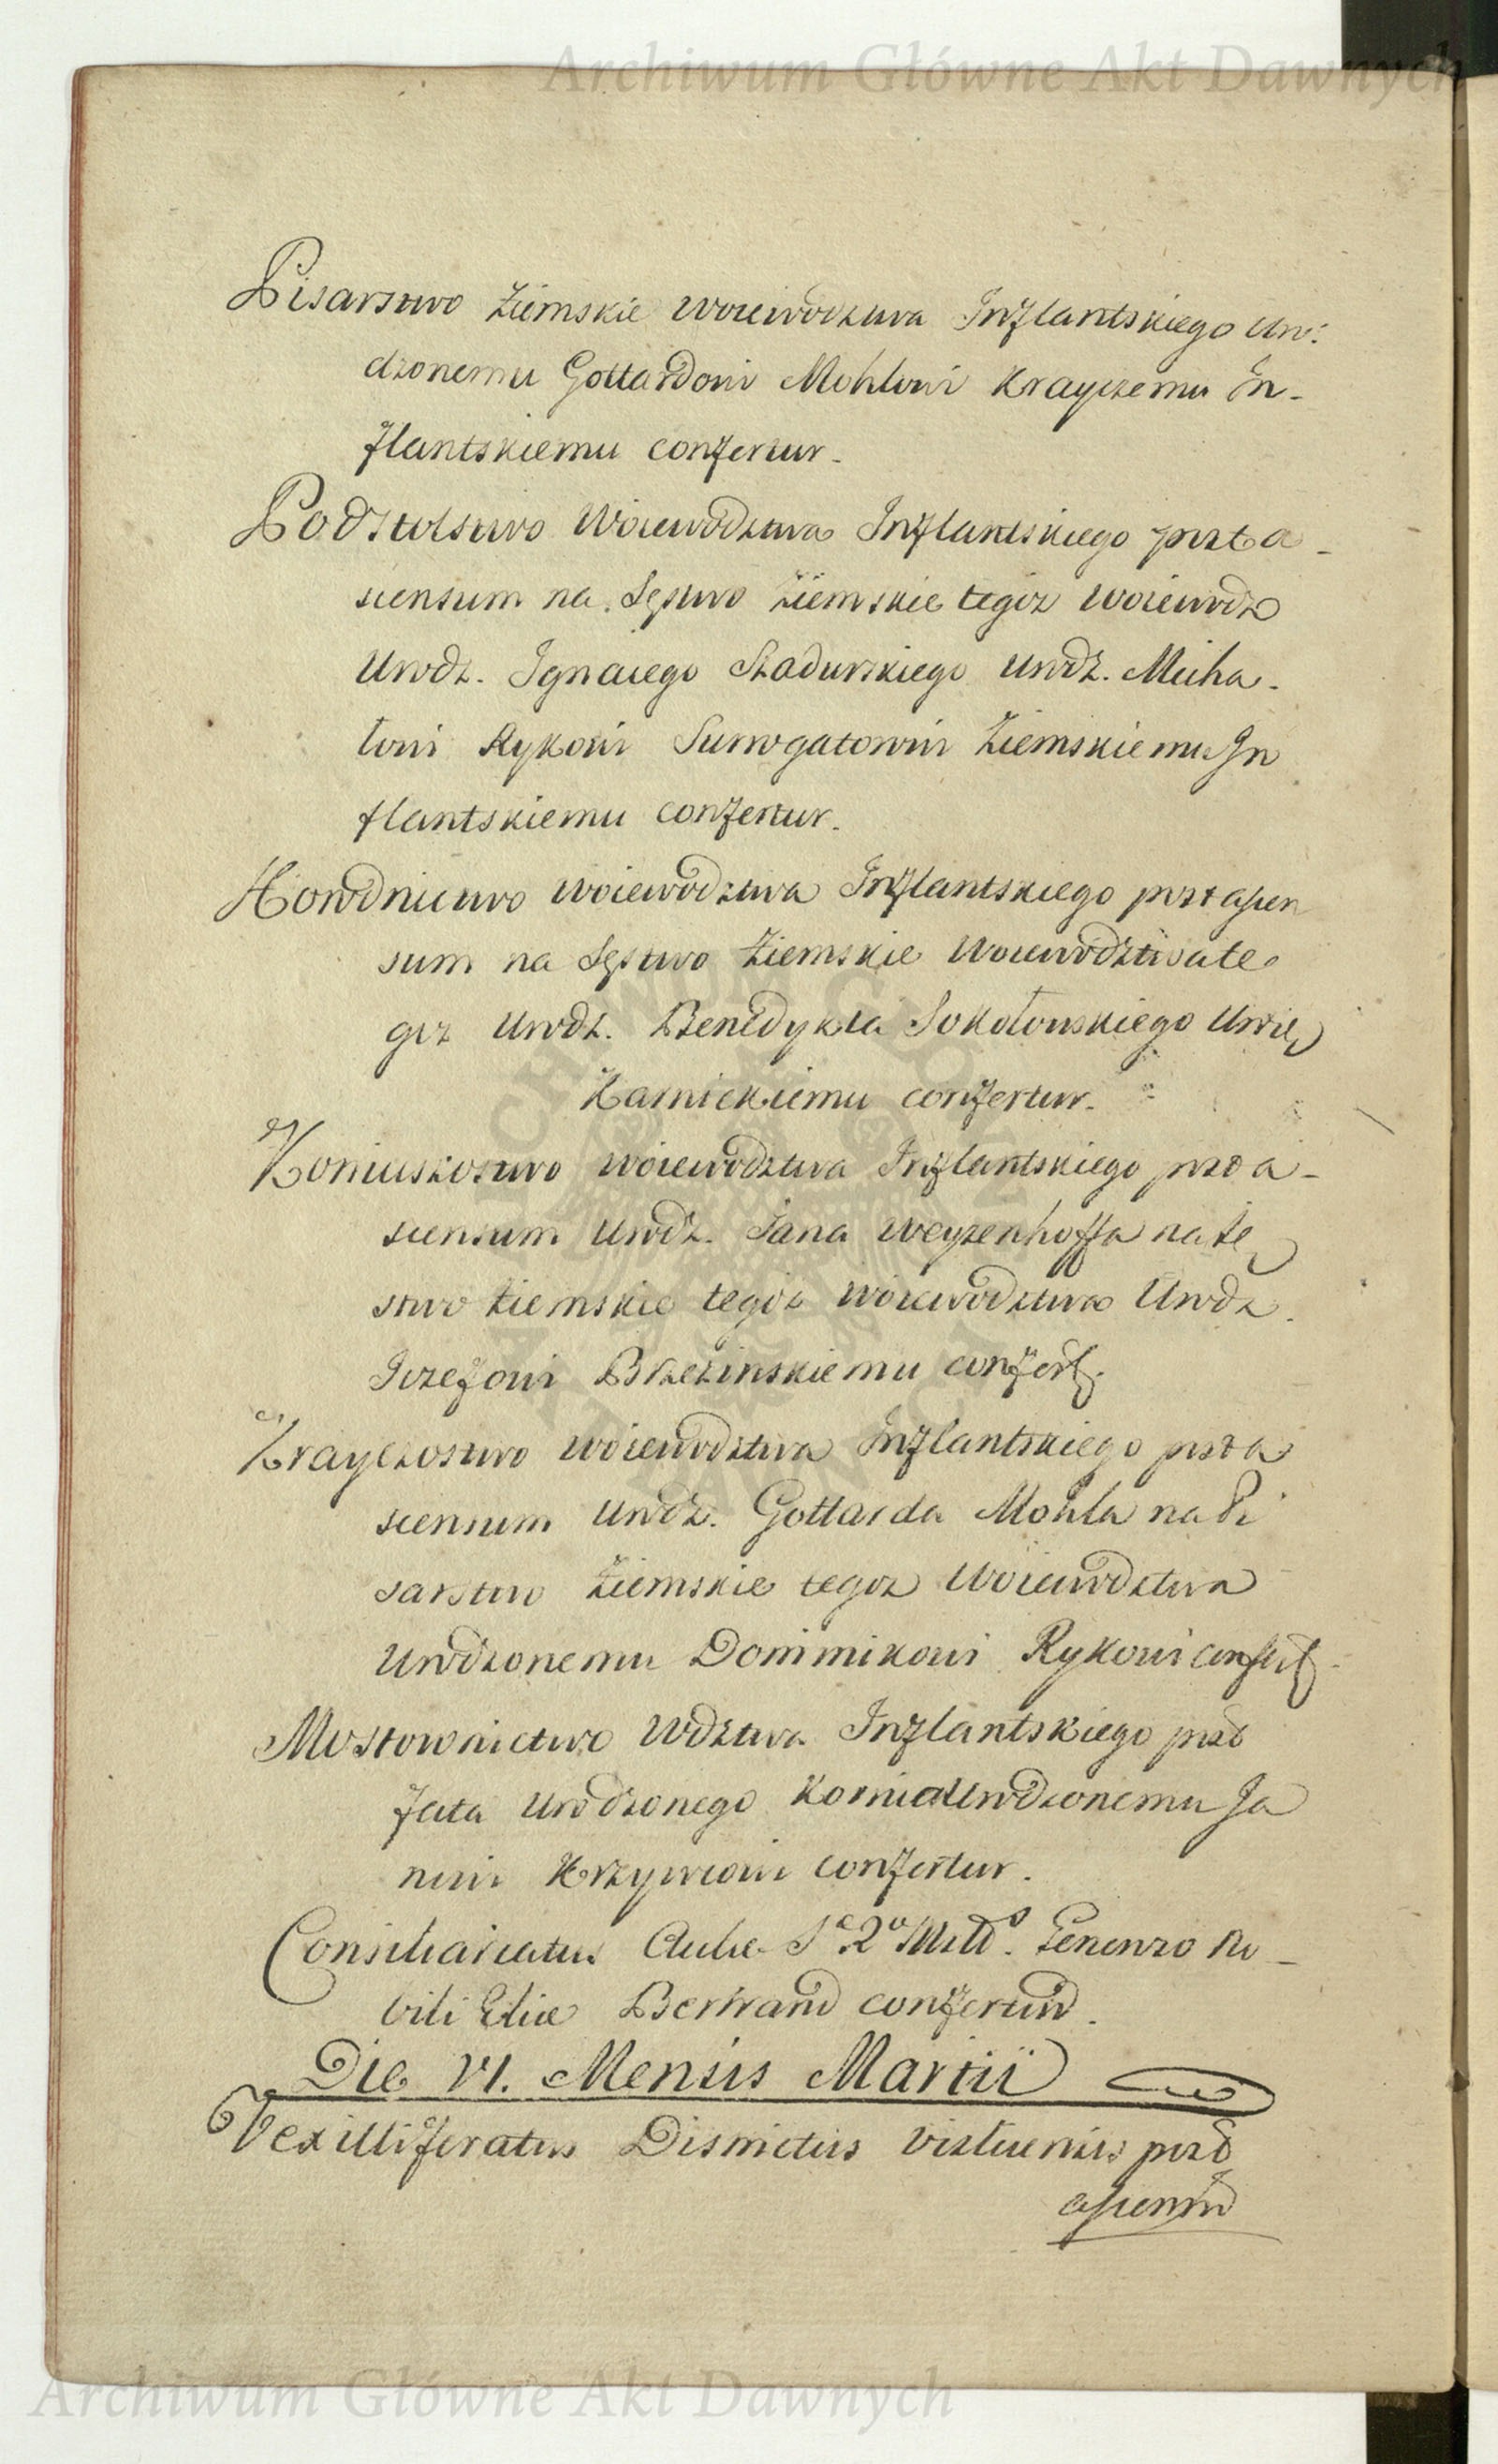 Archiwum Główne Akt Dawnych
Pisarstwo Ziemskie Woiewodztwa Inflantskiego Uro:
dzonemu Gottardowi Mohlowi Krayczemu In-
flantskiemu confertur.
Podstolstwo Woiewodztwa Inflantskiego post a-
scensum na Sęstwo Ziemskie tegoz Woiewodz
Urodz. Ignacego Szadurskiego Urodz. Micha-
łowi Rykowi Surrogatorowi Ziemskiemu In
flantskiemu confertur.
Horodnictwo Woiewodztwa Inflantskiego post ascen
sum na Sęstwo Ziemskie Woiewodztwa te
goz Urodz. Benedykta Sokołowskiego
Karnickiemu confertur.
Koniuszostwo Woiewodztwa Inflantskiego post a-
scensum Urodz. Jana Weyzenhoffa na Sę
stwo Ziemskie tegoz Woiewodztwa Urodz.
Jozefowi Brzezinskiemu confert.
Krayczostwo Woiewodztwa Inflantskiego post a
scensum Urodz. Gottarda Mohla na Pi
sarstwo Ziemskie tegoz Woiewodztwa
Urodzonemu Dominikowi Rykowi confert.
Mostownictwo Wdztwa Inflantskiego post
fata Urodzonego Kornica Urodzonemu Ja
nowi Krzywcowi confertur.
Consiliariatus Aulae Generoso No-
bili Eliae Bertrand confertur.
Die VI. Mensis Martii
Vexilliferatus Districtus Visliciensis post
ascensum
Archiwum Główne Akt Dawnych